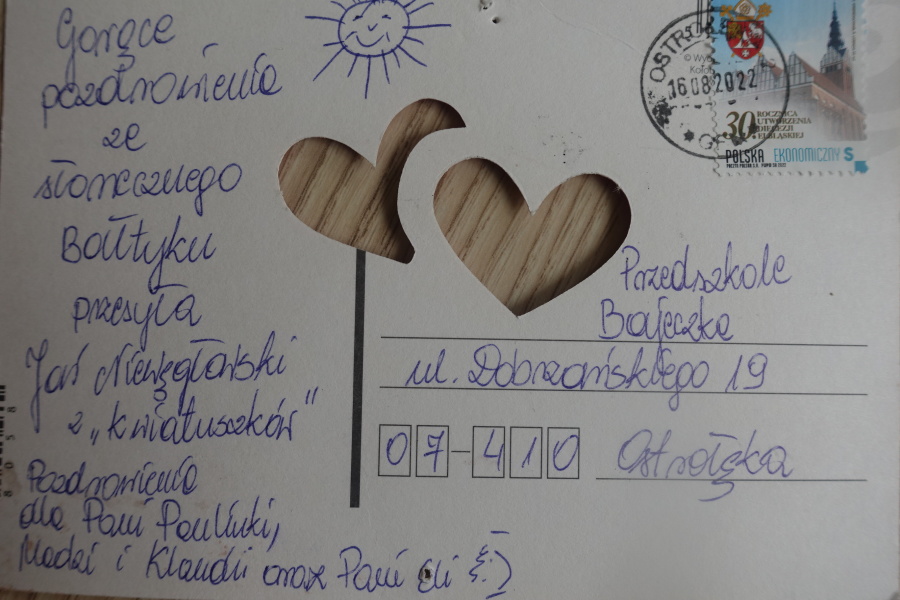 Gorące
pozdrowienia
ze
słonecznego
Bałtyku
przesyła
Jaś Niewęgłowski
z „kwiatuszków"
Pozdrowienia
dla Pani Paulinki,
Madzi i Klaudii oraz Pani Eli :)
OSTROŁ
16 08 2022
30. ROCZNICA
UTWORZENIA
DIECEZJI
ELBLĄSKIEJ
POLSKA EKONOMICZNY S
Przedszkole
Bajeczka
ul. Dobrzańskiego 19
07-410 Ostrołęka